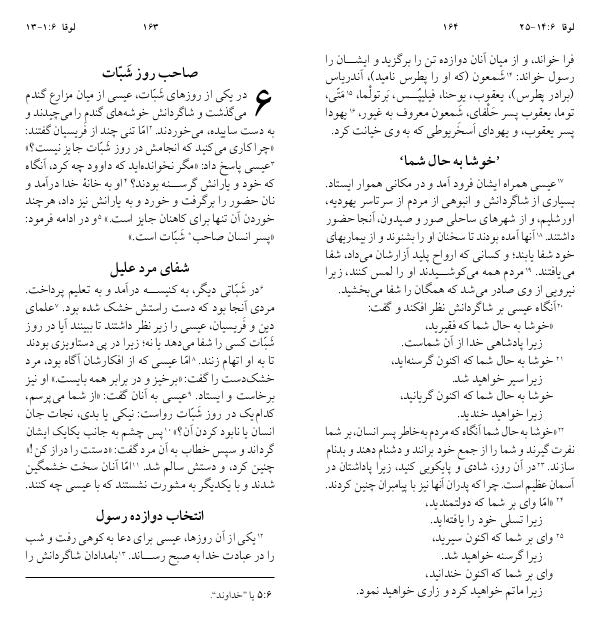 لوقا ۶:‏۱-۱۳
۱۶۳
صاحب روز شَبّات
۶ در یکی از روزهای شَبّات، عیسی از میان مزارع گندم
می‌گذشت و شاگردانش خوشه‌های گندم را می‌چیدند و
به دست ساییده، می‌خوردند. ۲امّا تنی چند از فَریسیان گفتند:
«چرا کاری می‌کنید که انجامش در روز شَبّات جایز نیست؟»
۳عیسی پاسخ داد: «مگر نخوانده‌اید که داوود چه کرد، آنگاه
که خود و یارانش گرسنه بودند؟ ۴او به خانهٔ خدا درآمد و
نان حضور را برگرفت و خورد و به یارانش نیز داد، هرچند
خوردن آن تنها برای کاهنان جایز است.» ۵و در ادامه فرمود:
«پسر انسان صاحب* شَبّات است.»
شفای مرد علیل
۶در شَبّاتی دیگر، به کنیسه درآمد و به تعلیم پرداخت.
مردی آنجا بود که دست راستش خشک شده بود. ۷علمای
دین و فَریسیان، عیسی را زیر نظر داشتند تا ببینند آیا در روز
شَبّات کسی را شفا می‌دهد یا نه؛ زیرا در پی دستاویزی بودند
تا به او اتهام زنند. ۸امّا عیسی که از افکارشان آگاه بود، مرد
خشک‌دست را گفت: «برخیز و در برابر همه بایست.» او نیز
برخاست و ایستاد. ۹عیسی به آنان گفت: «از شما می‌پرسم،
کدام‌یک در روز شَبّات رواست: نیکی یا بدی، نجات جان
انسان یا نابود کردن آن؟» ۱۰پس چشم به جانب یکایک ایشان
گرداند و سپس خطاب به آن مرد گفت: «دستت را دراز کن!»
چنین کرد، و دستش سالم شد. ۱۱امّا آنان سخت خشمگین
شدند و با یکدیگر به مشورت نشستند که با عیسی چه کنند.
انتخاب دوازده رسول
۱۲یکی از آن روزها، عیسی برای دعا به کوهی رفت و شب
را در عبادت خدا به صبح رساند. ۱۳بامدادان شاگردانش را
۵:۶ یا "خداوند".
۱۶۴
لوقا ۶:‏۱۴-۲۵
فرا خواند، و از میان آنان دوازده تن را برگزید و ایشان را
رسول خواند: ۱۴شَمعون (که او را پطرس نامید)، آندریاس
(برادر پطرس)، یعقوب، یوحنا، فیلیپُس، بَرتولْما، ۱۵مَتّی،
توما، یعقوب پسر حَلْفای، شَمعون معروف به غیور، ۱۶یهودا
پسر یعقوب، و یهودای اَسخَریوطی که به وی خیانت کرد.
'خوشا به حال شما'
۱۷عیسی همراه ایشان فرود آمد و در مکانی هموار ایستاد.
بسیاری از شاگردانش و انبوهی از مردم از سرتاسر یهودیه،
اورشلیم، و از شهرهای ساحلی صور و صیدون، آنجا حضور
داشتند. ۱۸آنها آمده بودند تا سخنان او را بشنوند و از بیماریهای
خود شفا یابند؛ و کسانی که ارواح پلید آزارشان می‌داد، شفا
می‌یافتند. ۱۹مردم همه می‌کوشیدند او را لمس کنند، زیرا
نیرویی از وی صادر می‌شد که همگان را شفا می‌بخشید.
۲۰آنگاه عیسی بر شاگردانش نظر افکند و گفت:
«خوشا به حال شما که فقیرید،
زیرا پادشاهی خدا از آن شماست.
۲۱ خوشا به حال شما که اکنون گرسنه‌اید،
زیرا سیر خواهید شد.
خوشا به حال شما که اکنون گریانید،
زیرا خواهید خندید.
۲۲«خوشا به حال شما آنگاه که مردم به‌خاطر پسر انسان، بر شما
نفرت گیرند و شما را از جمع خود برانند و دشنام دهند و بدنام
سازند. ۲۳در آن روز، شادی و پایکوبی کنید، زیرا پاداشتان در
آسمان عظیم است. چرا که پدران آنها نیز با پیامبران چنین کردند.
۲۴ «امّا وای بر شما که دولتمندید،
زیرا تسلی خود را یافته‌اید.
۲۵ وای بر شما که اکنون سیرید،
زیرا گرسنه خواهید شد.
وای بر شما که اکنون خندانید،
زیرا ماتم خواهید کرد و زاری خواهید نمود.